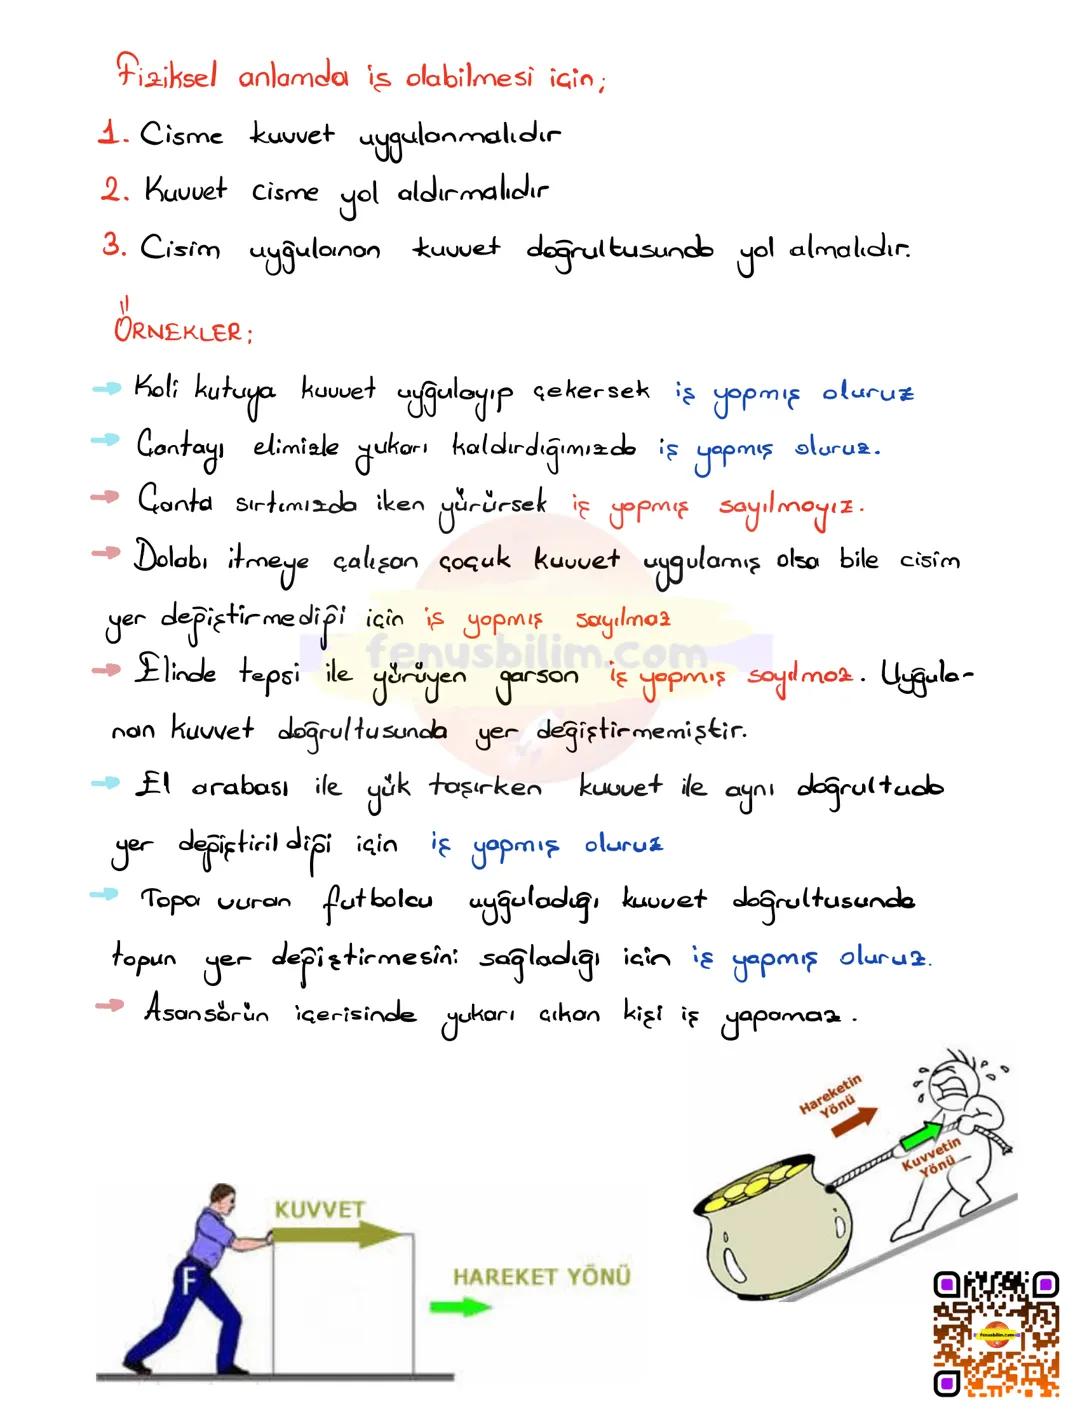 Fiziksel anlamda iş olabilmesi için;
1. Cisme kuvvet uygulanmalıdır
2. Kuvvet cisme yol aldırmalıdır
3. Cisim uyğulanan kuvvet doğrultusunda yol almalıdır.
ÖRNEKLER;
→ Koli kutuya kuvvet uyğulayıp çekersek iş yapmış oluruz
→ Çantayı elimizle yukarı kaldırdığımızda iş yapmış oluruz.
→ Çanta sırtımızda iken yürürsek iş yapmış sayılmayız.
→ Dolabı itmeye çalışan çoçuk kuvvet uygulamış olsa bile cisim
yer değiştirmediği için iş yapmış sayılmaz
fenusbilim.com
→ Elinde tepsi ile yürüyen garson iş yapmış sayılmaz. Uyğula-
nan kuvvet doğrultusunda yer değiştirmemiştir.
→ El arabası ile yük taşırken kuvvet ile aynı doğrultuda
yer değiştirildiği için iş yapmış oluruz
→ Topa vuran futbolcu uyğuladığı kuvvet doğrultusunda
topun yer değiştirmesini sağladığı için iş yapmış oluruz.
→ Asansörün içerisinde yukarı çıkan kişi iş yapamaz.
Hareketin
Yönü
Kuvvetin
Yönü
KUVVET
F
HAREKET YÖNÜ
fenusbilim.com